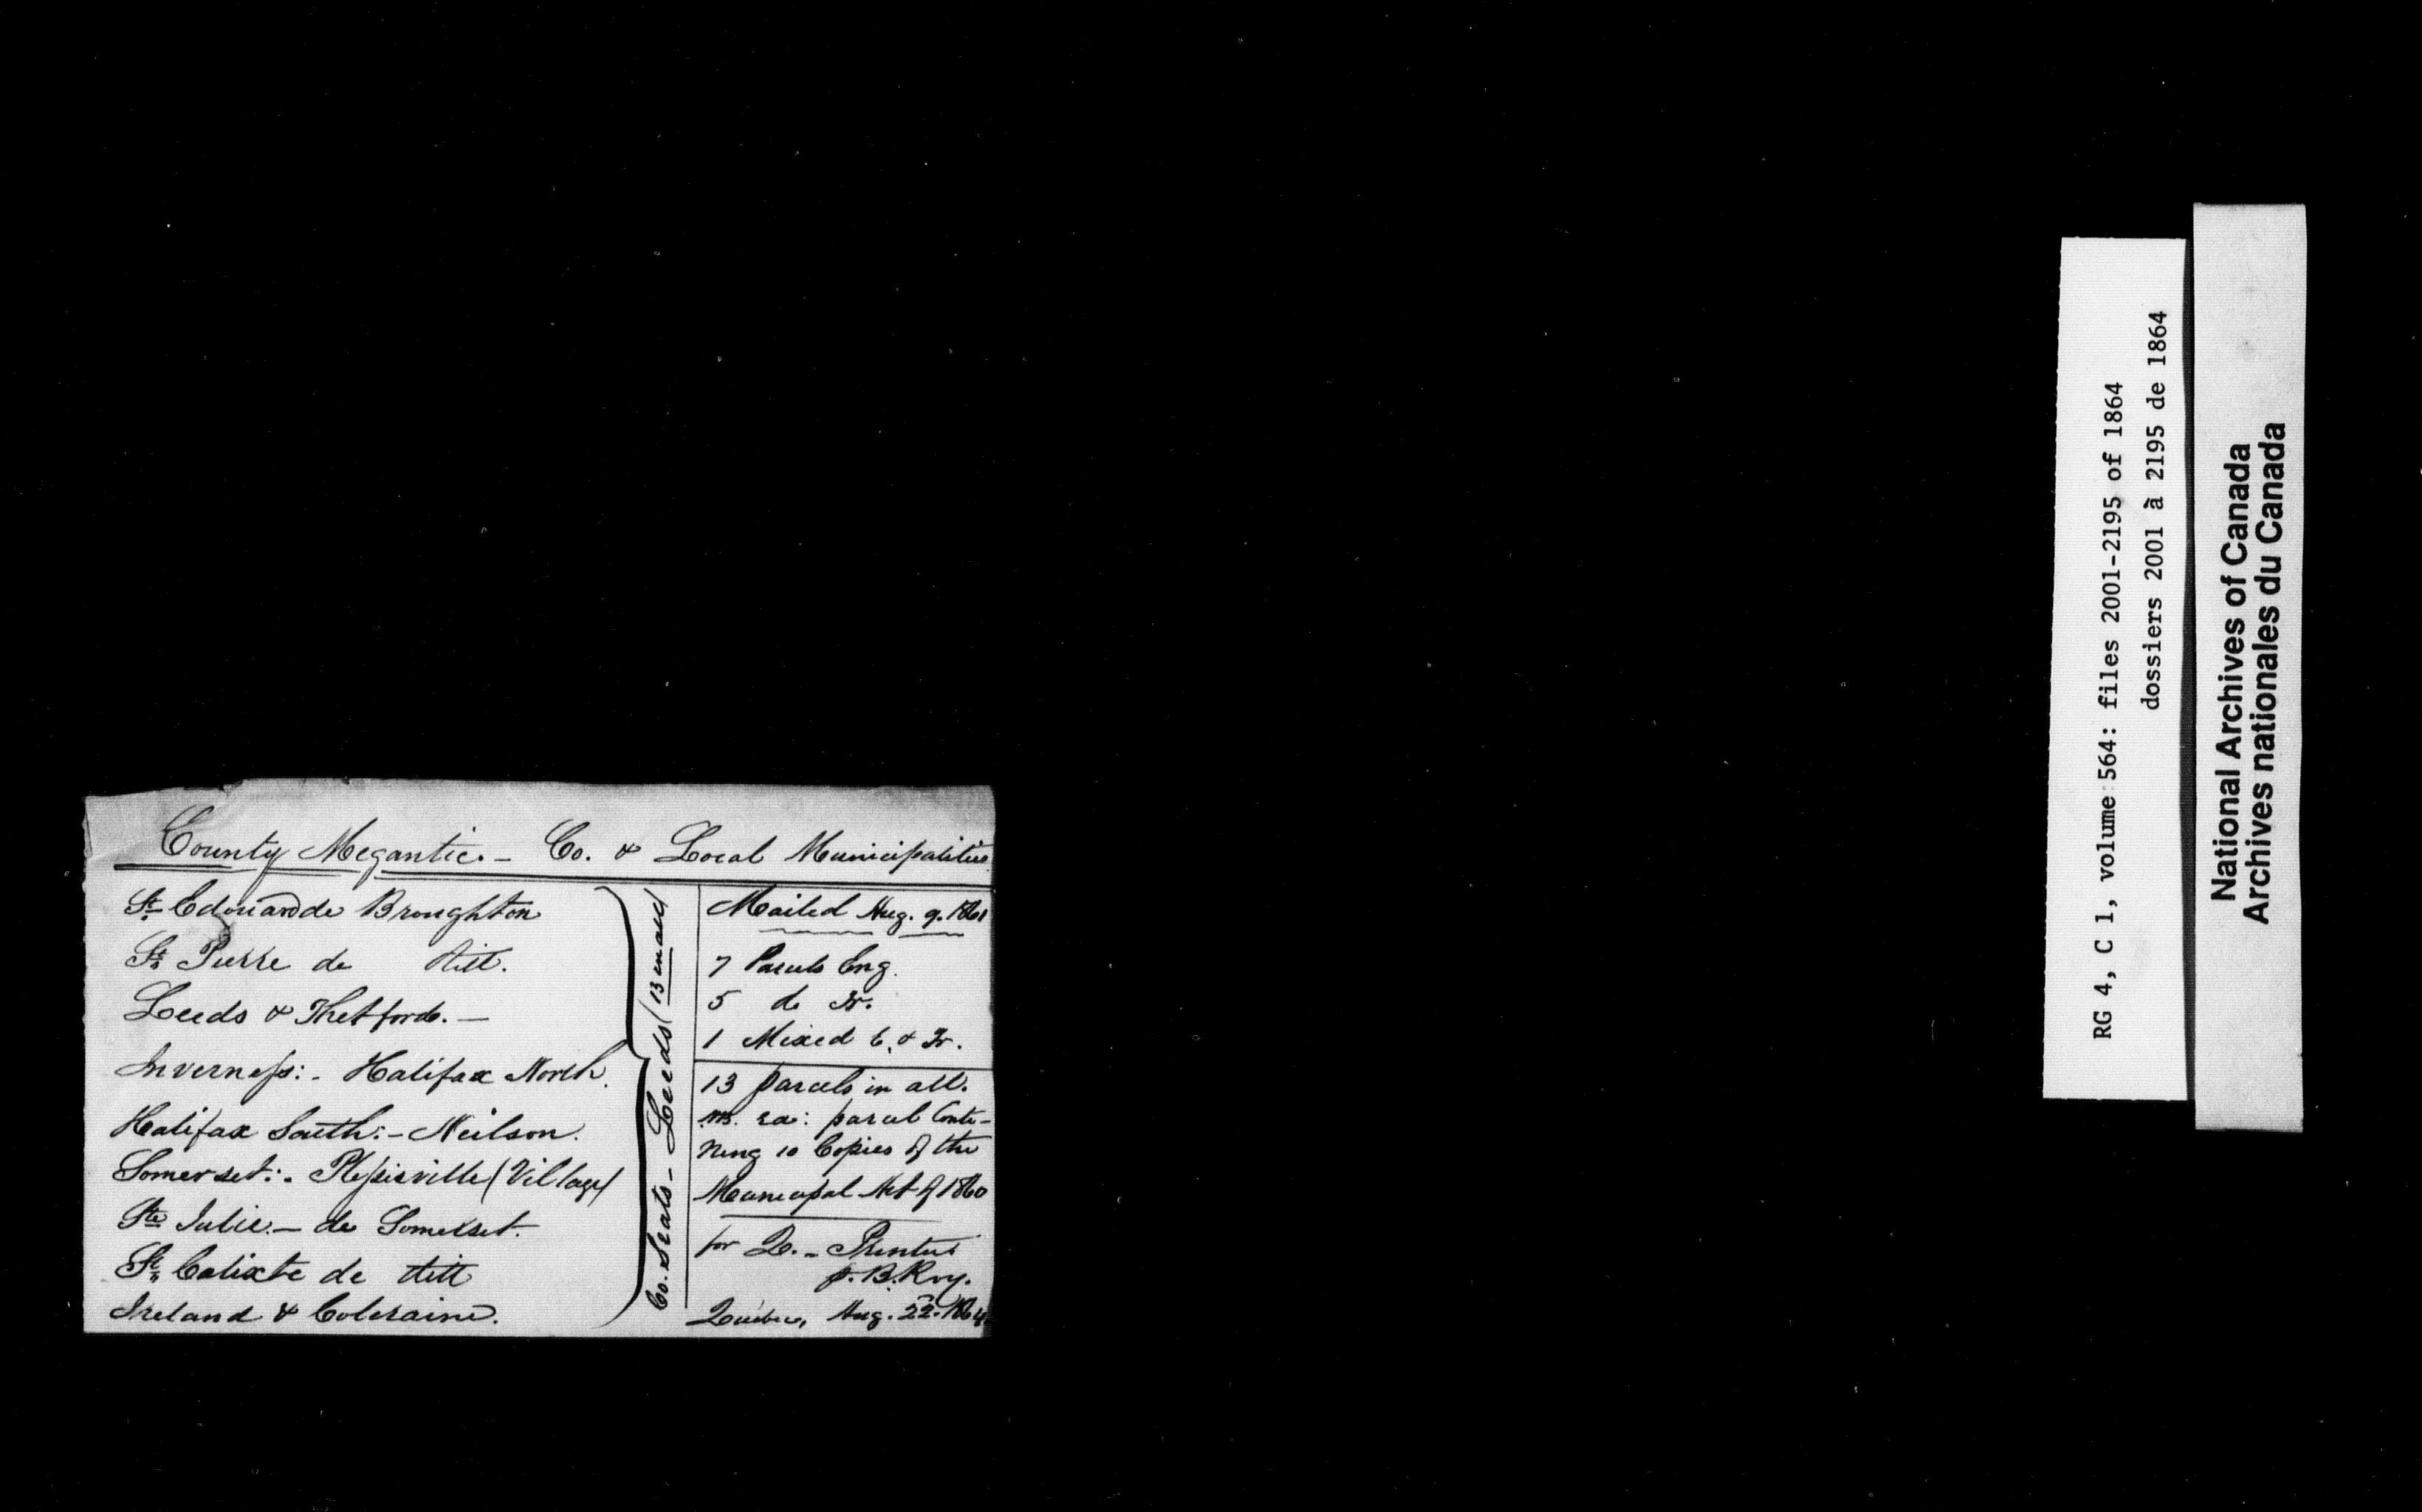 County Megantic. - Co. & Local Municipalities
St. Edouard de Broughton
St. Pierre de ditt.
Leeds & Thetford. -
Inverness: - Halifax North.
Halifax South: - Neilson.
Somerset: - Plessisville (Village)
Ste Julie. - de Somerset.
St. Calixte de ditt
Ireland & Coleraine.
Co. Seats - Leeds (13 in all)
Mailed Aug. 9. 1861
7 Parcels Eng.
5 do Fr.
1 Mixed E. & Fr.
13 parcels in all.
ea: parcel Conte-
ning 10 Copies of the
Municipal Act of 1860
for Q. - Printers
p. B. Roy.
Quebec, Aug. 22. 1864
RG 4, C 1, volume 564: files 2001-2195 of 1864
dossiers 2001 à 2195 de 1864
National Archives of Canada
Archives nationales du Canada